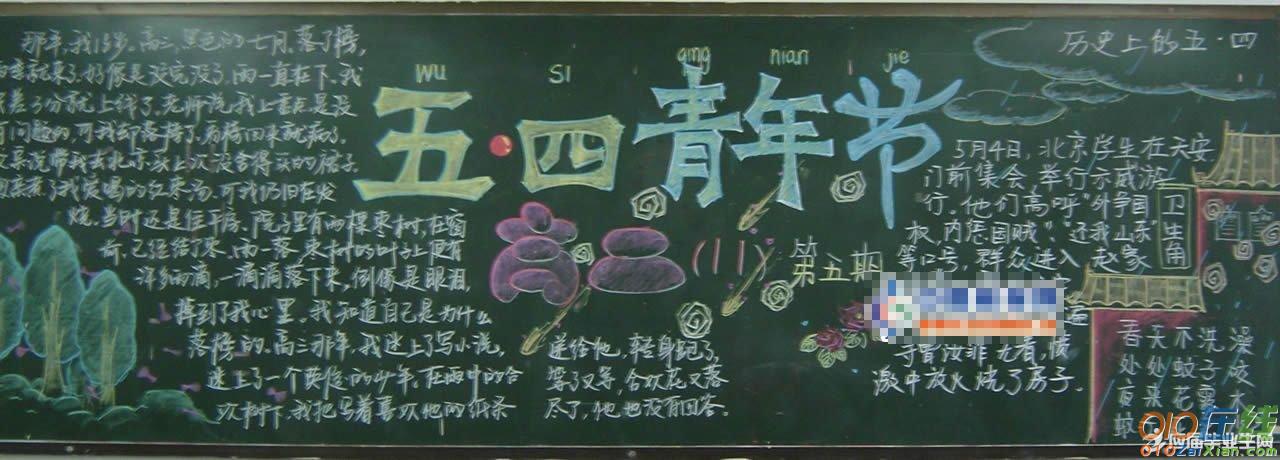 wu si qing nian jie
五·四青年节
高三(11)第五期
那年,我18岁。高三,黑色的七月,落了榜,
好像是没完没了,雨一直在下。我
差了分就上线了。老师说,我上重点是没
问题的,可我却落榜了。
说带我去北京
了我爱喝的红枣汤,可我仍旧在发
烧。当时还是住平房。院子里有两棵枣树,在窗
前,已经结了果,雨一落,枣树的叶子上便有
许多的滴,一滴滴落下来,倒像是眼泪,
掉到了我心里。我知道自己是为什么
落榜的。高三那年,我迷上了写小说,
迷上了一个英俊的少年。在雨中的合
欢树下,我把写着喜欢他的纸条
递给他,轻身跑了,
等了又等,合欢花又落
尽了,他也没有回答。
历史上的五·四
5月4日,北京学生在天安
门前集会举行示威游
行。他们高呼"外争国
权,内惩国贼""还我山东"
等口号,群众进入赵家
激中放火烧了房子。
卫生角
春天不洗澡
处处蚊子咬
夜来花露水
010在线
010zaixian.com
应届毕业生网